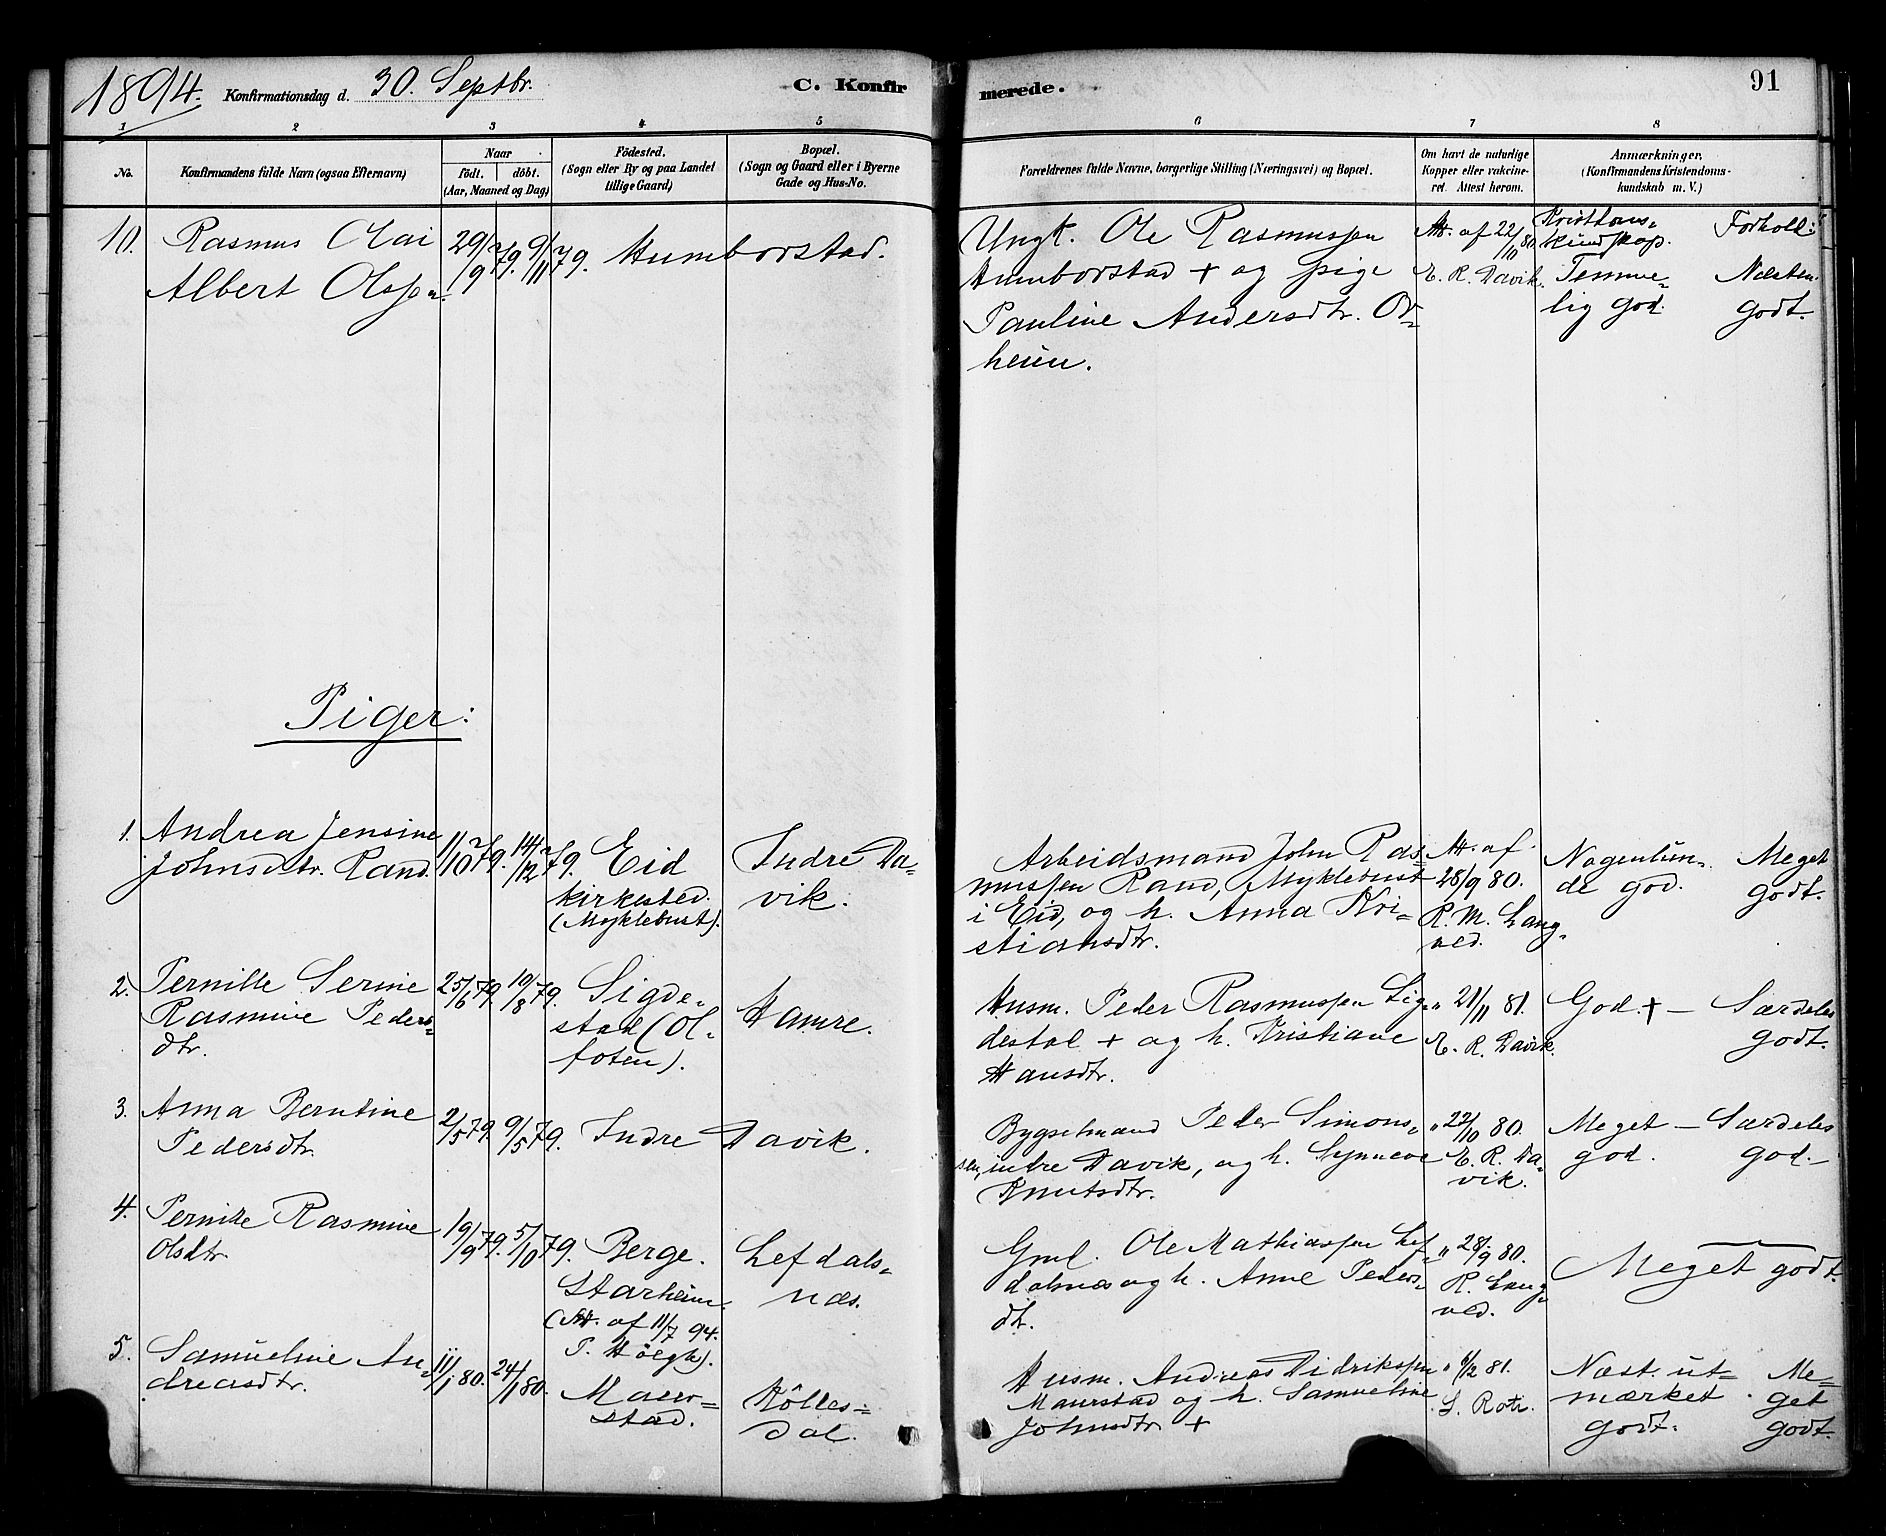 1894. Konfirmationsdag d. 30. Septbr. C. Konfirmerede. 91
1 2 3 4 5 6 7 8
No.
Konfirmandens fulde Navn (ogsaa Efternavn)
Naar
födt. döbt.
(Aar, Maaned og Dag)
Födested.
(Sogn eller By og paa Landet
tillige Gaard)
Bopæl.
(Sogn og Gaard eller i Byerne
Gade og Hus-No.
Forældrenes fulde Navne, borgerlige Stilling (Næringsvei) og Bopæl.
Om havt de naturlige
Kopper eller vakcine-
ret. Attest herom.
Anmærkninger.
(Konfirmandens Kristendoms-
kundskab m. V.)
Kristdoms-
kundskap. Forhold:
10. Rasmus Olai
Albert Olssen.
29/9 79. 9/11 79.
Humborstad.
Ungk. Ole Rasmussen
Humborstad + og pige
Pauline Andersdtr. Or-
heim.
Att. af 22/10 80.
E. R. Davik.
Temme-
lig god.
Næsten
godt.
Piger:
1. Andrea Jensine
Johnsdtr. Rand.
11/10 79. 14/12 79.
Eid
kirkested.
(Myklebust).
Indre Da-
vik.
Arbeidsmand John Ras-
mussen Rand, Myklebust
i Eid, og h. Anna Kri-
stiansdtr.
Att. af
28/9 80.
R. M. Lang-
ved.
Nogenlun-
de god.
Meget
godt.
2. Pernille Serine
Rasmine Peders-
dtr.
25/6 79. 10/8 79.
Sigde-
stad (Ol-
foten).
Hamre.
Husm. Peder Rasmussen Sig-
destad + og h. Kristiane
Hansdtr.
" 21/11 81.
E. R. Davik.
God. + —
Særdeles
godt.
3. Anna Berntine
Pedersdtr.
2/5 79. 9/5 79.
Indre Davik.
Bygselmand Peder Simons-
sen, indre Davik, og h. Synneve
Knutsdtr.
" 22/10 80.
E. R. Da-
vik.
Meget —
god.
Særdeles
god. —
4. Pernille Rasmine
Olsdtr.
19/9 79. 5/10 79.
Berge.
Starheim.
(Att. af 11/7 94.
P. Höegh).
Lefdals-
næs.
Gml. Ole Mathiassen Lef-
dalnæs og h. Anne Peders-
dtr.
" 28/9 80.
R. Lang-
ved.
Meget godt.
5. Samueline An-
dreasdtr.
11/1 80. 24/1 80.
Maur-
stad.
Kölles-
dal.
Husm. Andreas Didrikssen
Maurstad og h. Samueline
Johnsdtr. +
" 6/12 81.
S. Roti.
Næst. ut-
mærket
godt.
Me-
get
godt.